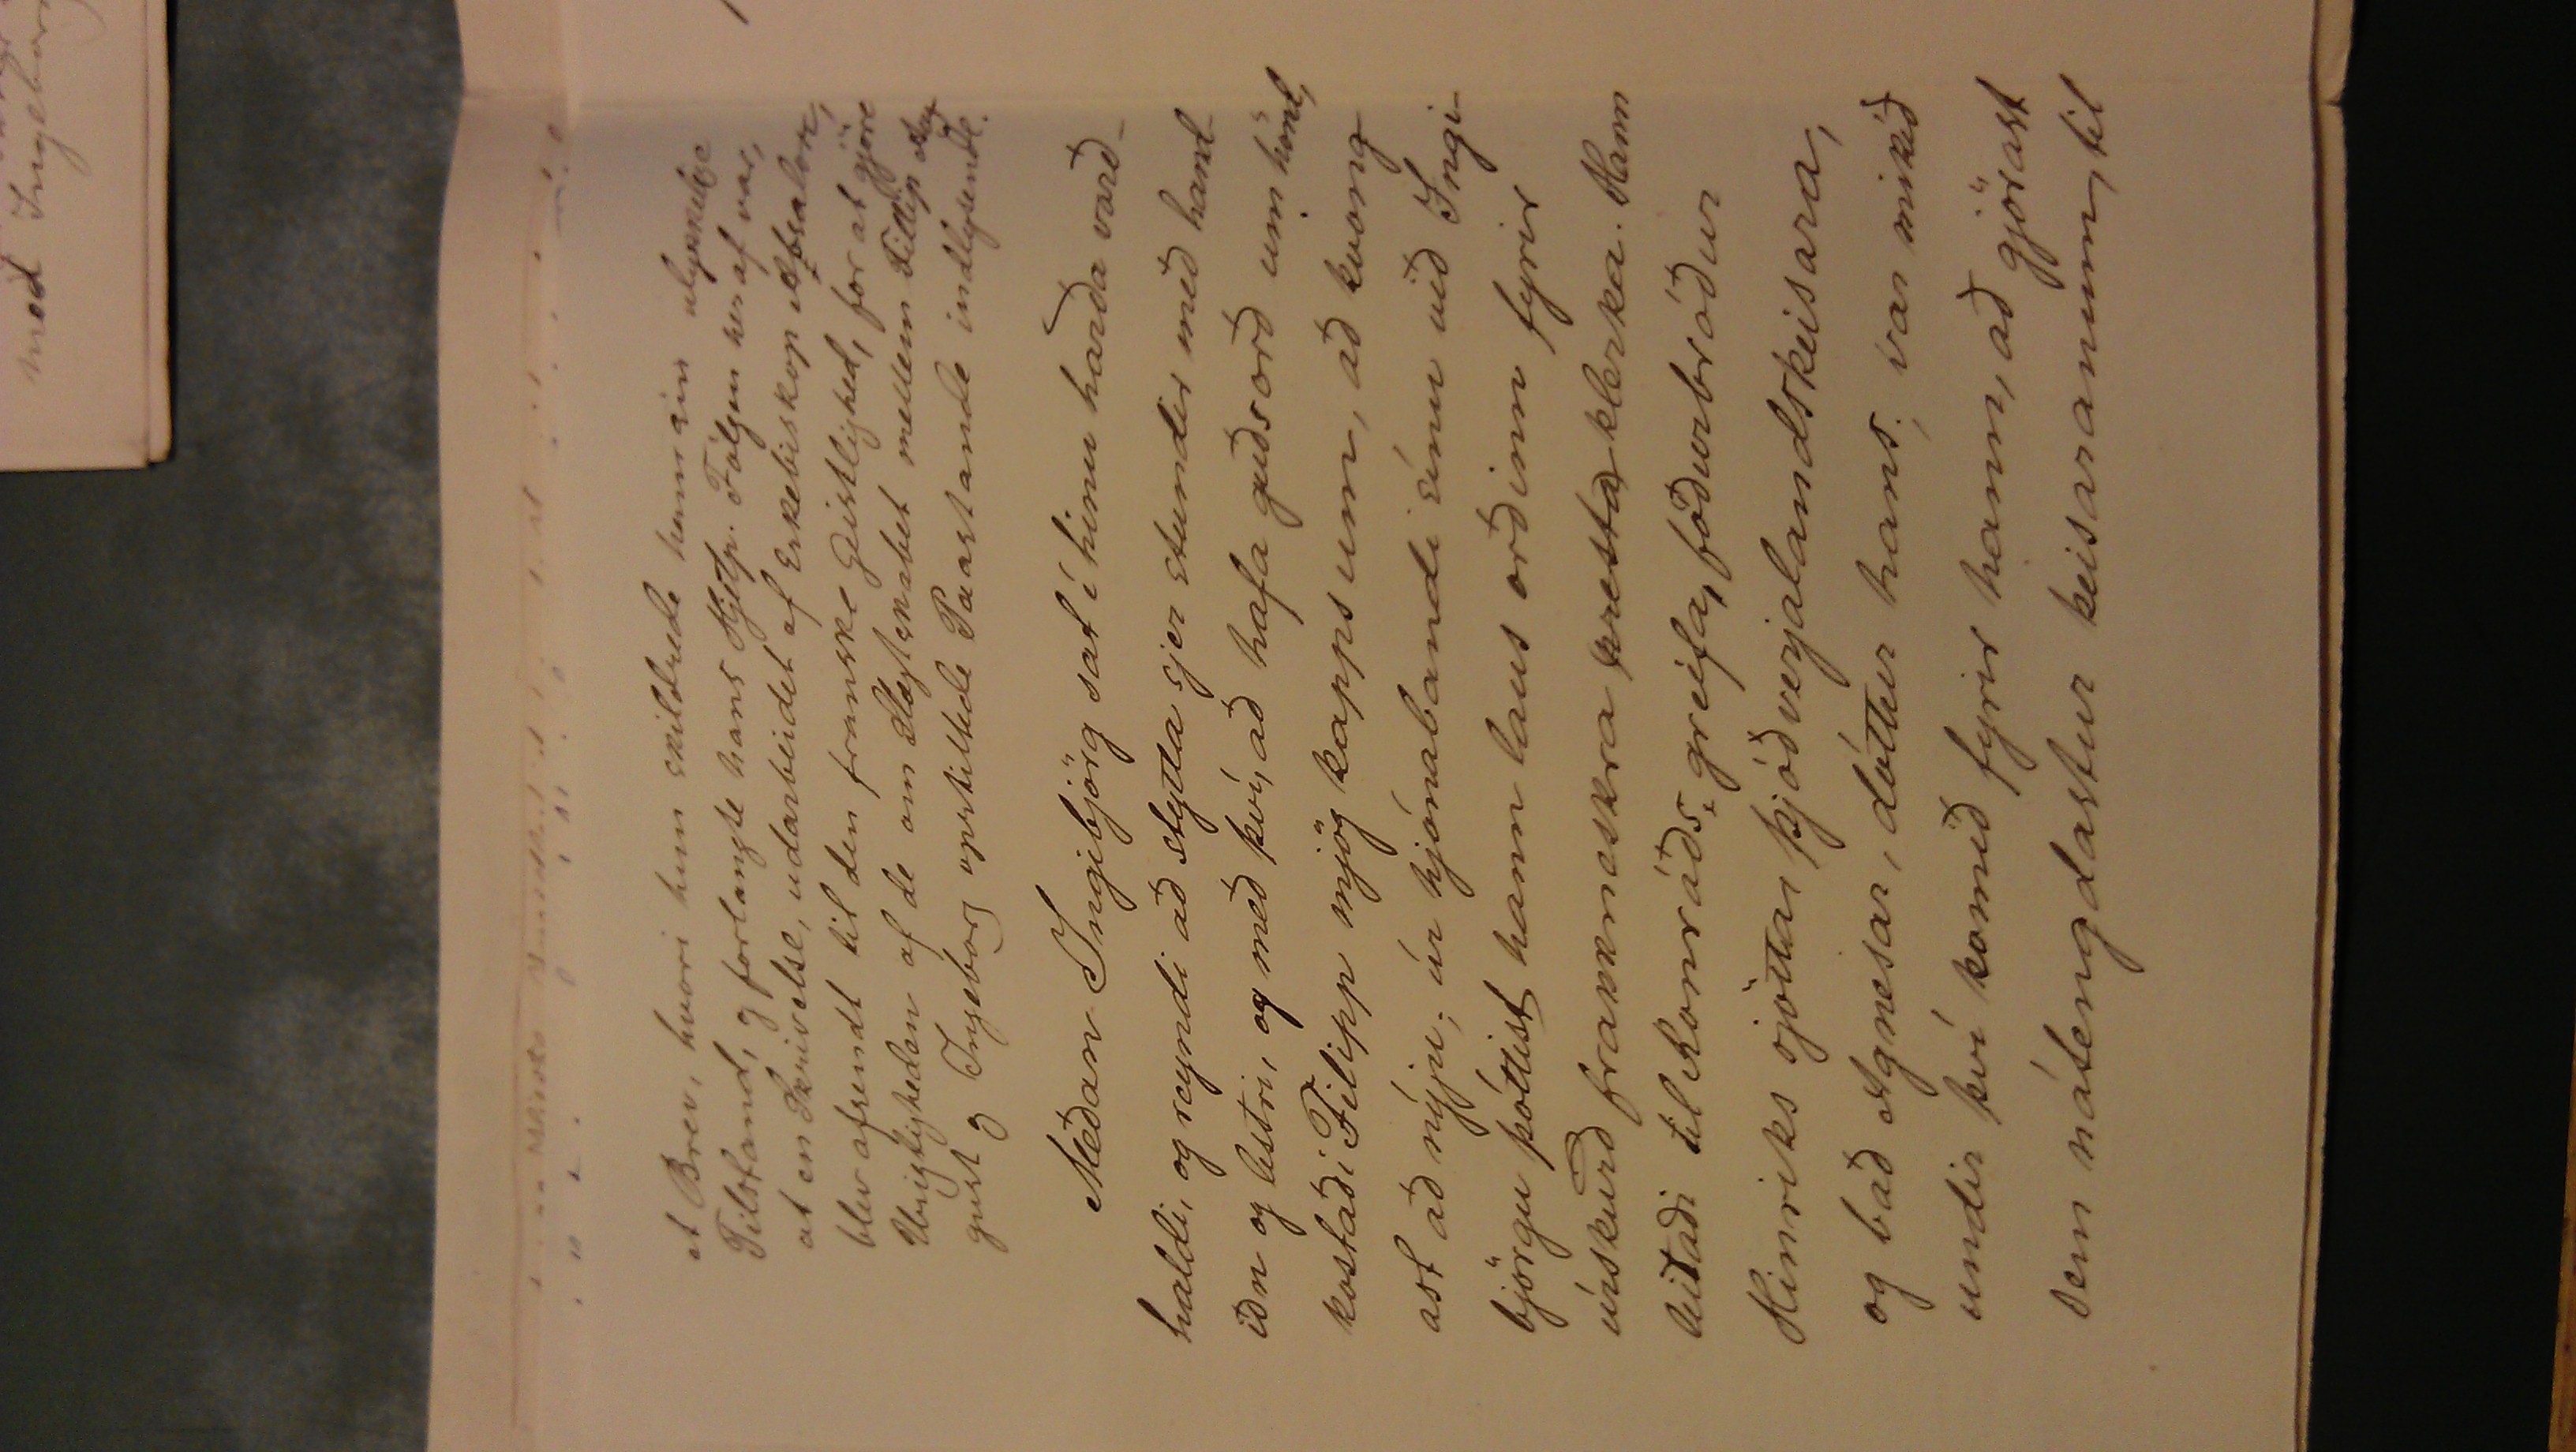 med Ingeborg
et Brev, hvori hun skildrede hennain ulykkelige
Tilstand, og forlangte hans Hjelp. Følgen heraf var,
at en Skrivelse, udarbeidet af Erkebiskop Absalon,
blev afsendt til den franske Geistlighed, for at gjöre
Urigtigheden af de om Slægtskabet mellem Fillip Au-
gust og Ingeborg opstillede Paastande indlysende.
Meðan Ingibjörg sat í hinu harða varð-
haldi, og reyndi að stytta sjer stundir með hand-
iðn og lestri, og með því, að hafa guðsorð um hönd,
kostaði Filipp mjög kapps um, að kvong-
ast að nýju; úr hjónabandi sínu við Ingi-
björgu þóttist hann laus orðinn fyrir
úrskurð frakkneskra presta klerka. Hann
leitaði til Konráðs greifa, föðurbróður
Hinriks sjötta, þjóðverjalandskeisara,
og bað Agnesar, dóttur hans; var mikið
undir því komið fyrir hann, að gjörast
sem nátengdastur keisaranum, til